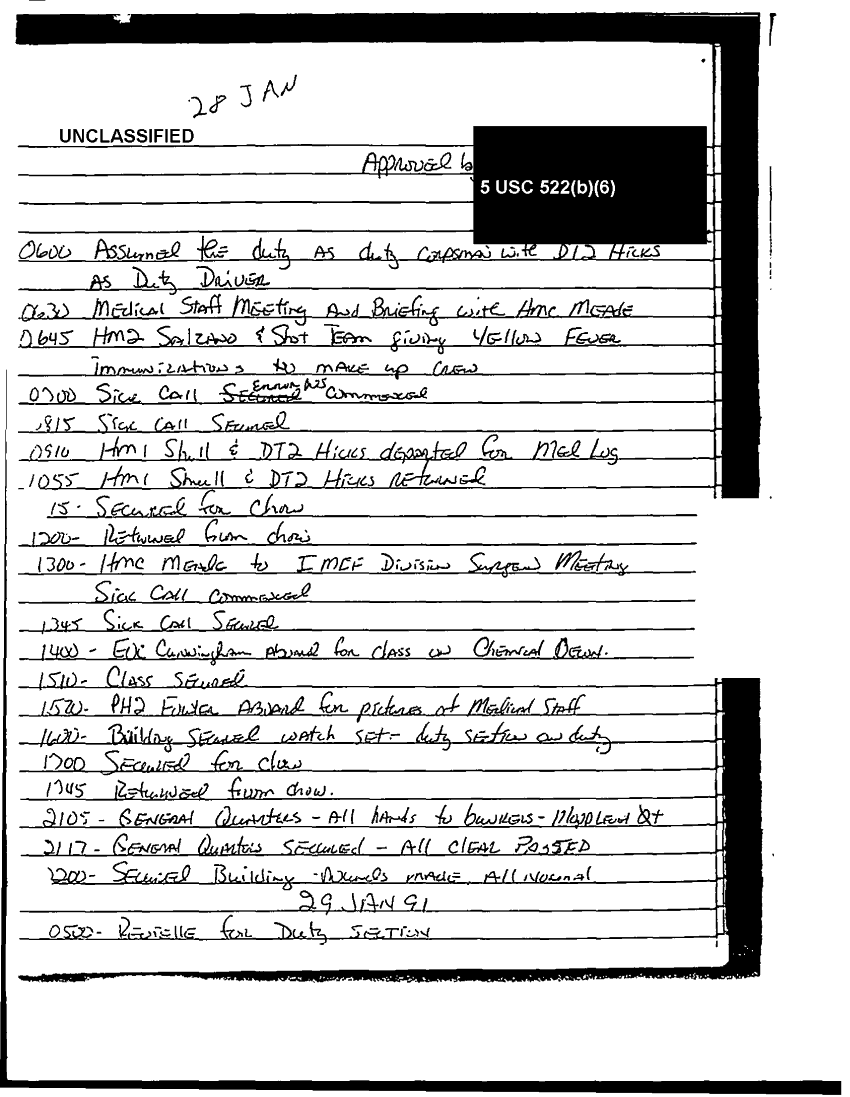 28 JAN
UNCLASSIFIED
Approved b
5 USC 522(b)(6)
0600 Assumed the duty as duty corpsman with DT2 Hicks
as Duty Driver
0630 Medical Staff Meeting and Briefing with HMC Meade
0645 HM2 Salzano & Shot Team giving Yellow Fever
immunizations to make up crew
0700 Sick Call Secured Error Commenced
0815 Sick Call Secured
0910 HM1 Shull & DT2 Hicks departed for Med Log
1055 HM1 Shull & DT2 Hicks returned
15- Secured for Chow
1200- Returned from chow
1300- HMC Meade to I MEF Division Surgeon Meeting
Sick Call Commenced
1345 Sick Call Secured
1400- Cunningham aboard for class on Chemical Decon.
1510- Class Secured
1520- PH2 aboard for pictures of Medical Staff
1600- Building Secured watch set- duty section on duty
1700 Secured for chow
1745 Returned from chow.
2105- General Quarters- All hands to bunkers-
2117- General Quarters Secured- All Clear Passed
2200- Secured Building made, All Normal
29 JAN 91
0500- Reveille for Duty Section